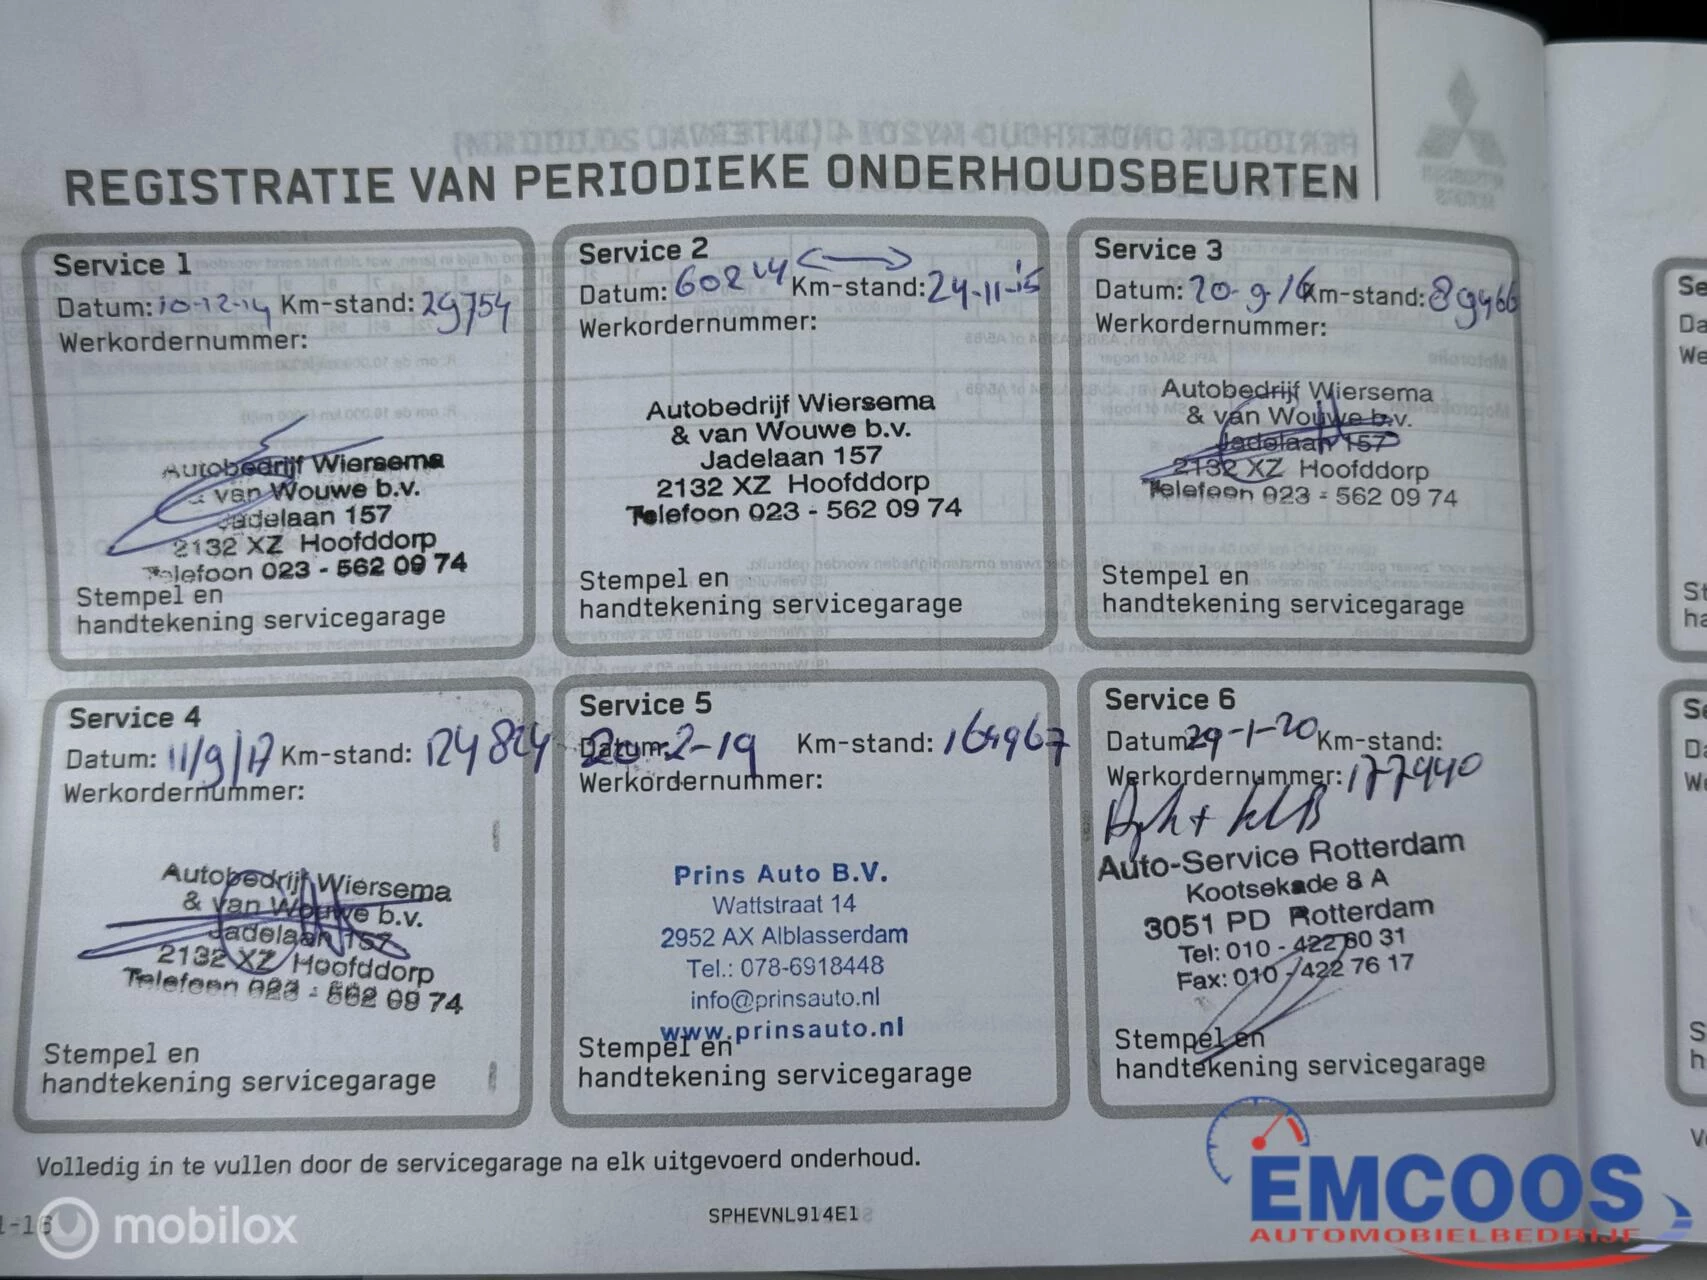 REGISTRATIE VAN PERIODIEKE ONDERHOUDSBEURTEN
Service 1
Datum: 10-12-14 Km-stand: 29754
Werkordernummer:
Autobedrijf Wiersema
& van Wouwe b.v.
Jadelaan 157
2132 XZ Hoofddorp
Telefoon 023 - 562 09 74
Stempel en
handtekening servicegarage
Service 2
Datum: 60214 Km-stand: 24-11-'15
Werkordernummer:
Autobedrijf Wiersema
& van Wouwe b.v.
Jadelaan 157
2132 XZ Hoofddorp
Telefoon 023 - 562 09 74
Stempel en
handtekening servicegarage
Service 3
Datum: 20-9-16 Km-stand: 89466
Werkordernummer:
Autobedrijf Wiersema
& van Wouwe b.v.
Jadelaan 157
2132 XZ Hoofddorp
Telefoon 023 - 562 09 74
Stempel en
handtekening servicegarage
Service 4
Datum: 11/9/17 Km-stand: 124824
Werkordernummer:
Autobedrijf Wiersema
& van Wouwe b.v.
Jadelaan 157
2132 XZ Hoofddorp
Telefoon 023 - 562 09 74
Stempel en
handtekening servicegarage
Service 5
Datum: 20-2-19 Km-stand: 164967
Werkordernummer:
Prins Auto B.V.
Wattstraat 14
2952 AX Alblasserdam
Tel.: 078-6918448
info@prinsauto.nl
www.prinsauto.nl
Stempel en
handtekening servicegarage
Service 6
Datum: 29-1-20 Km-stand:
Werkordernummer: 177440
Auto-Service Rotterdam
Kootsekade 8 A
3051 PD Rotterdam
Tel: 010 - 422 80 31
Fax: 010 - 422 76 17
Stempel en
handtekening servicegarage
Volledig in te vullen door de servicegarage na elk uitgevoerd onderhoud.
SPHEVNL914E1
1-16
mobilox
EMCOOS
AUTOMOBIELBEDRIJF